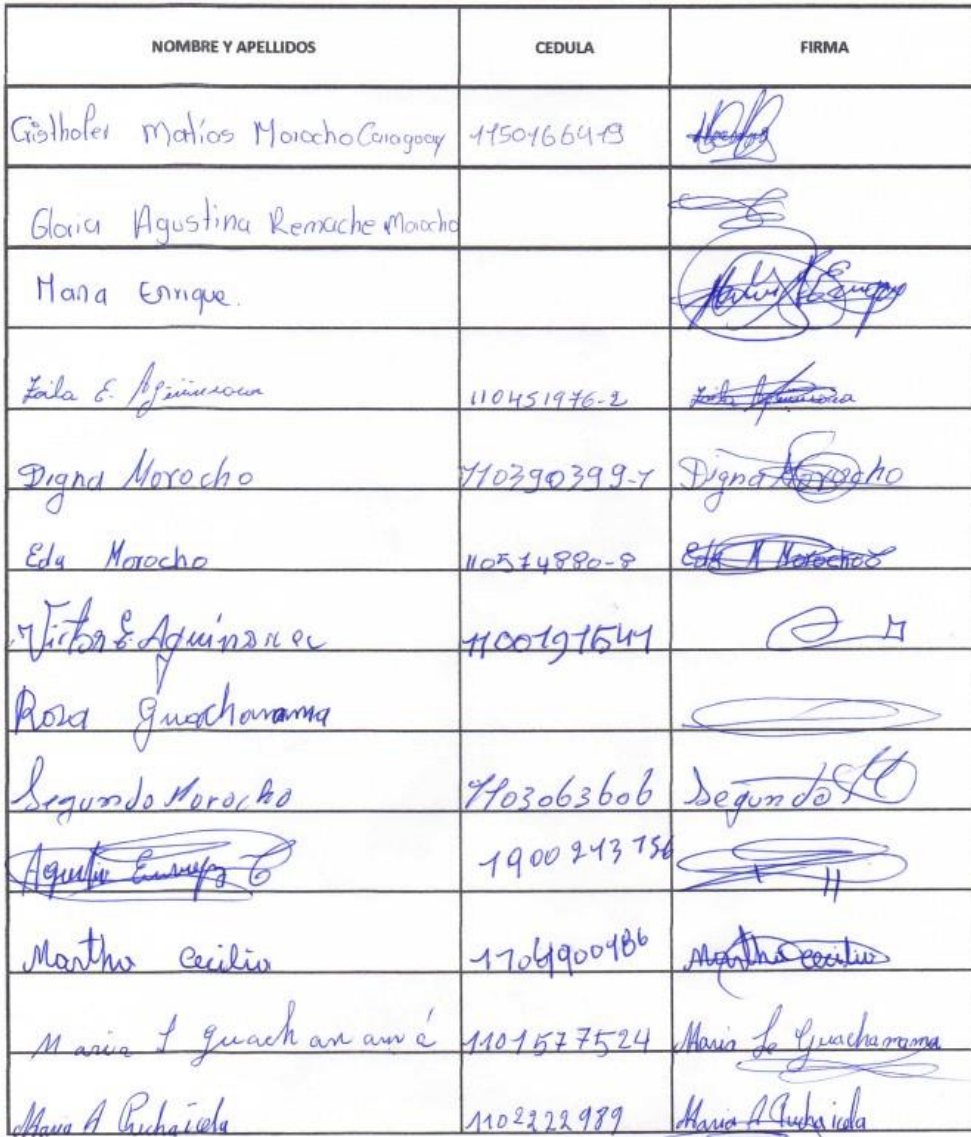 NOMBRE Y APELLIDOS CEDULA FIRMA
Cristhofer Matías Morocho Caraguay 1150166419
Gloria Agustina Remache Morocho
Maria Enrique.
Zoila E. 110451976-2 Zoila
Digna Morocho 110390399-1 Digna Morocho
Eda Morocho 110574880-8 Eda M Morocho
Victor E. Aguinsaca 1100191541
Rosa Guachanama
Segundo Morocho 1103063606 Segundo M
Agustin 1900243156
Martha Cecilia Martha Cecilia
Maria L Guachanamá 1101577524 Maria L Guachanama
Maria A Puchaicela 1102222989 Maria A Puchaicela